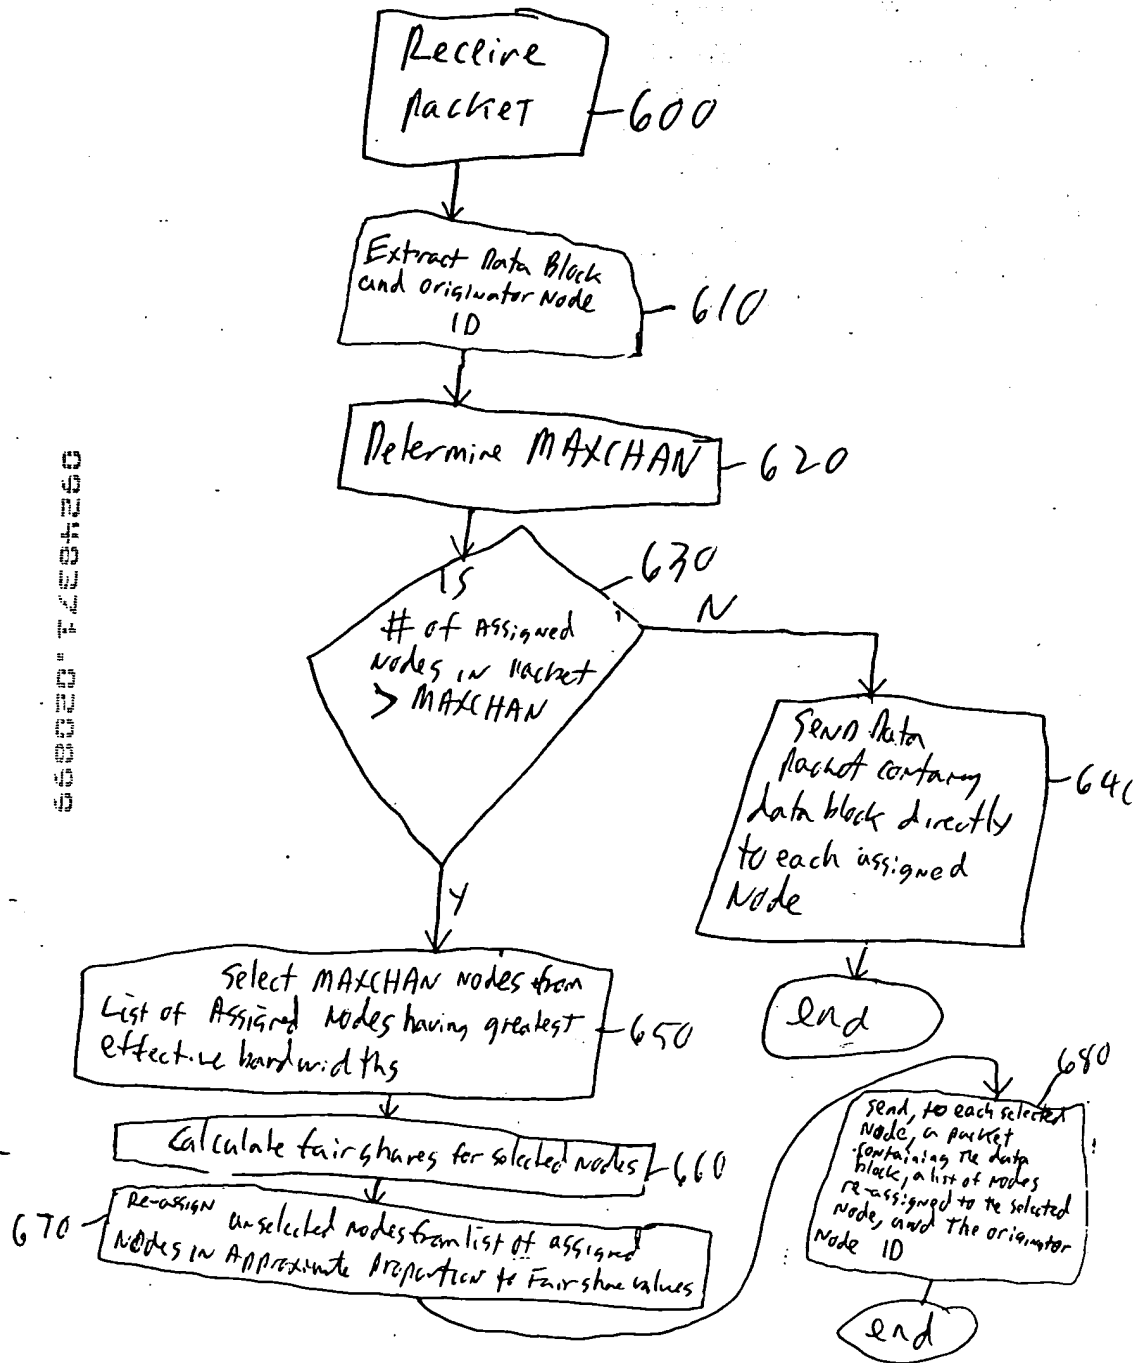 Receive
Packet
600
Extract Data Block
and originator Node
ID
610
Determine MAXCHAN
620
630
IS
# of Assigned
Nodes in Packet
> MAXCHAN
N
Y
Send Data
Packet containing
data block directly
to each assigned
Node
640
end
Select MAXCHAN nodes from
List of Assigned Nodes having greatest
effective bandwidths
650
Calculate fair shares for selected nodes
660
670
Re-assign unselected nodes from list of assigned
Nodes in Approximate Proportion to Fair share values
680
Send, to each selected
Node, a packet
containing the data
block, a list of nodes
re-assigned to the selected
Node, and The originator
Node ID
end
09248371.020899